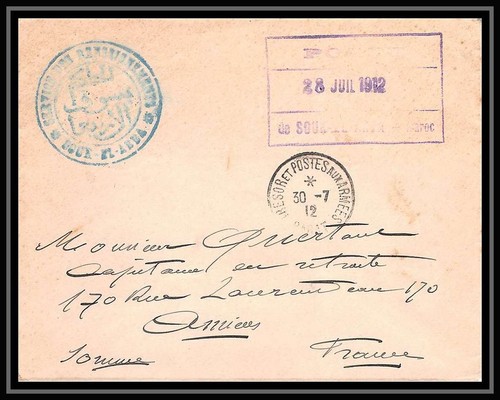 SECTION DES RENSEIGNEMENTS
SOUK EL-ARBA
28 JUIL 1912
de SOUK
TRESOR ET POSTES AUX ARMEES
*
30 -7
12
Monsieur Quertant
Capitaine en retraite
170 Rue Laurendeau 170
Amiens
Somme France